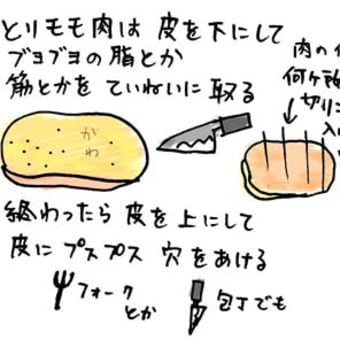 とりモモ肉は 皮を下にして
ブヨブヨの脂とか
筋とかを ていねいに 取る
肉の
何ヶ所
切りに
入
かわ
終わったら 皮を上にして
皮に プスプス 穴をあける
フォーク
とか
包丁でも